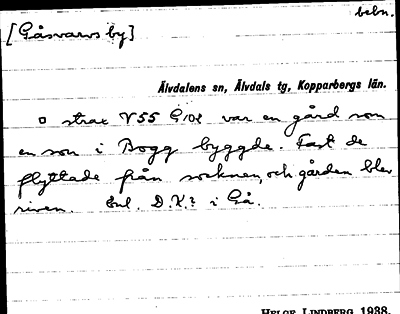 bebn.
[Gåsvarvs by]
Älvdalens sn, Älvdals tg, Kopparbergs län.
□ strax V55 G102 var en gård som
en son i Bogg byggde. Fast de
flyttade från socknen, och gården blev
riven. Enl. D.K.? i Gå.
HELGE LINDBERG 1938.